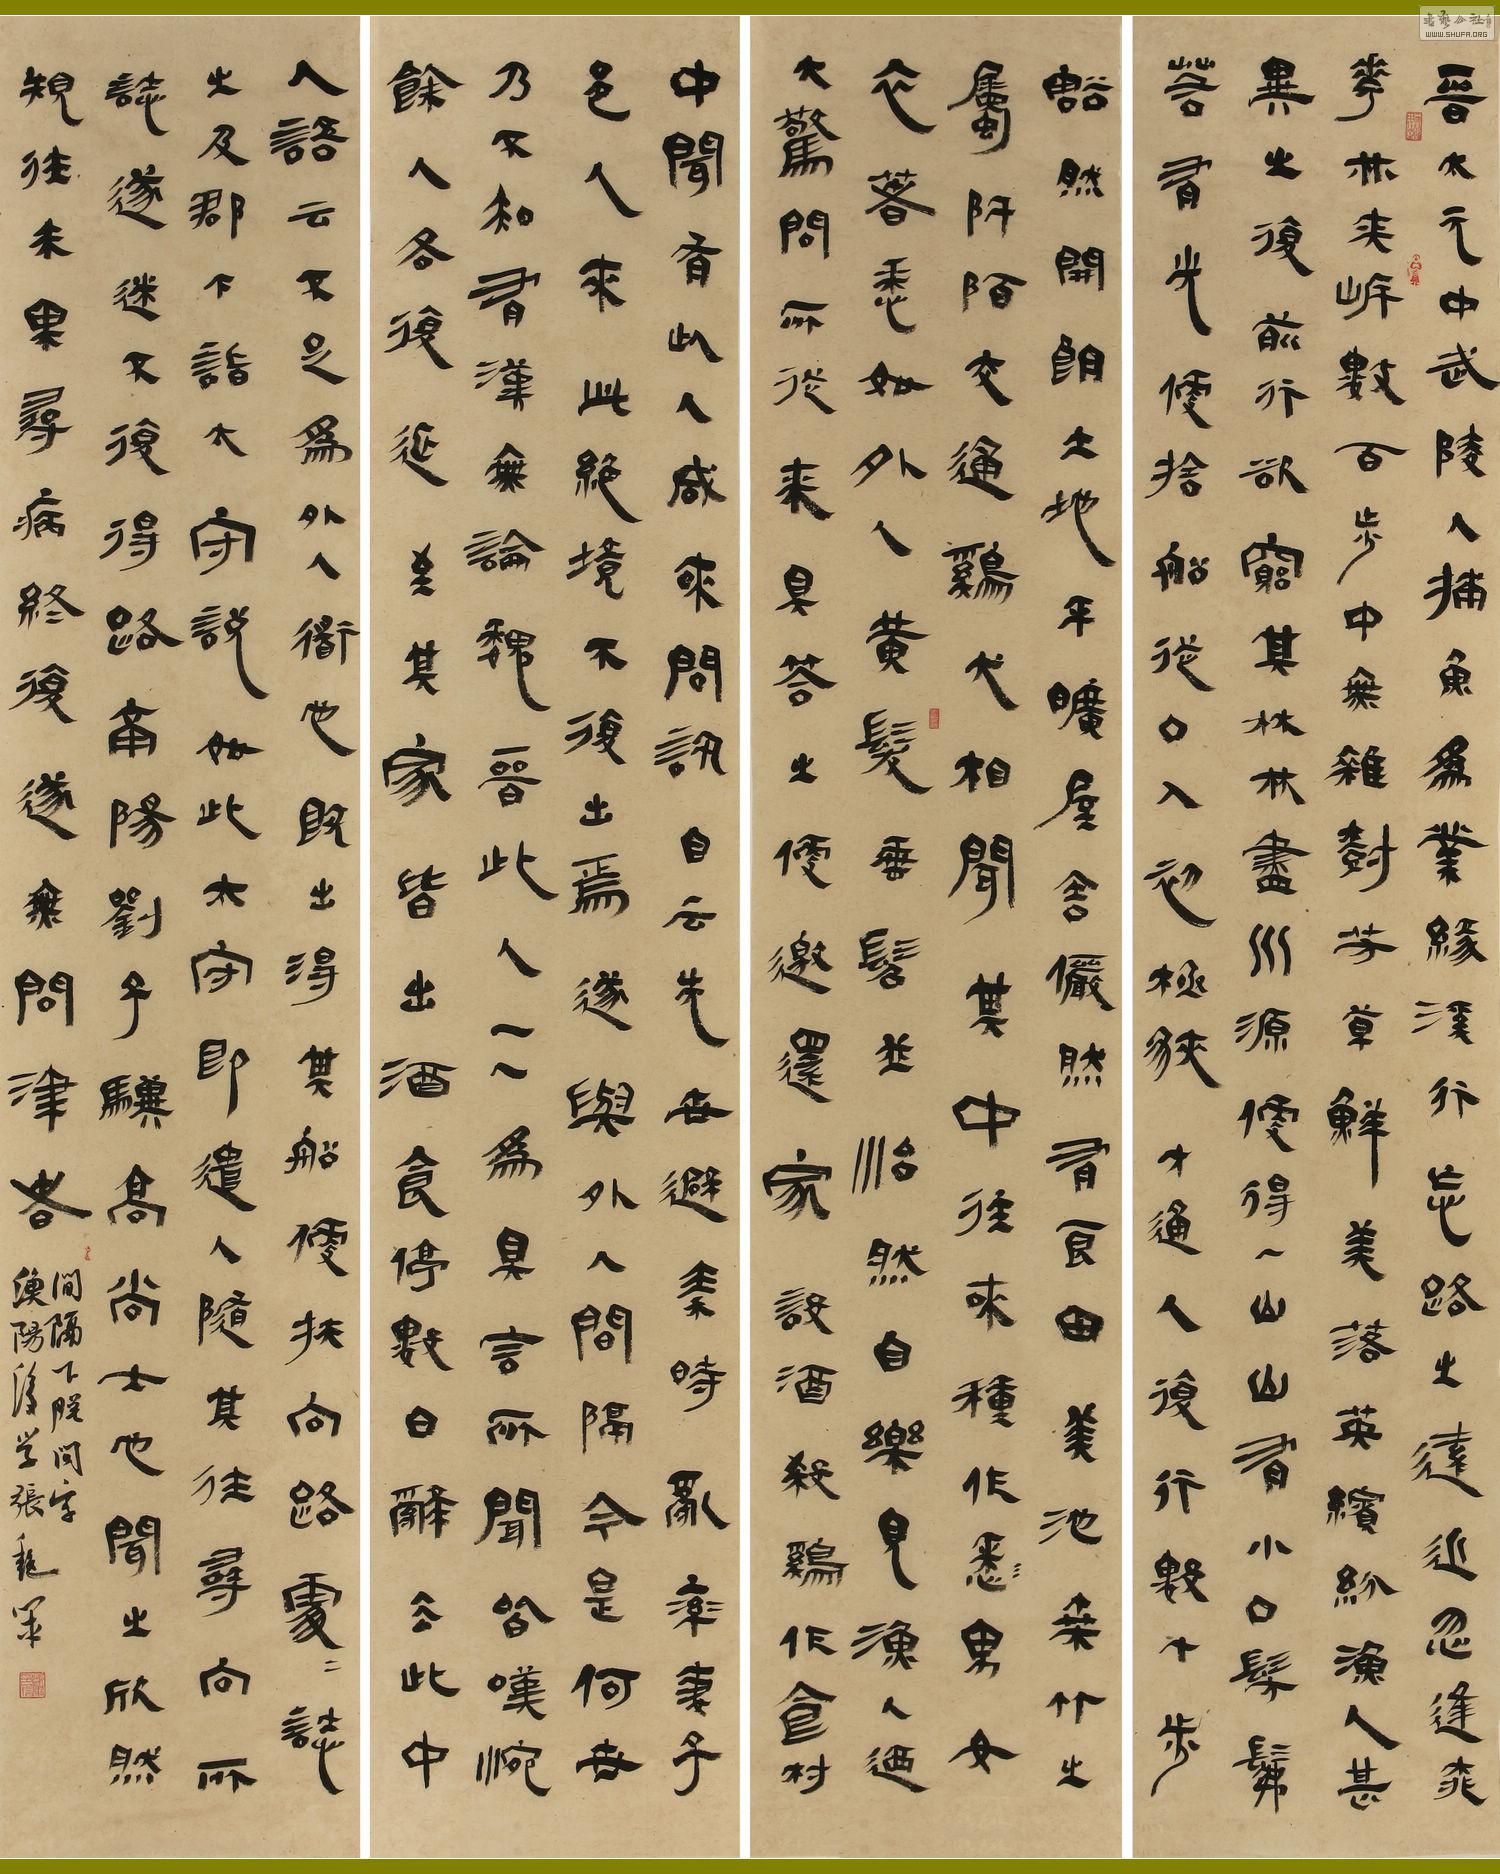 晉太元中武陵人捕魚爲業緣溪行忘路之遠近忽逢桃
華林夾岸數百步中無雜樹芳草鮮美落英繽紛漁人甚
異之復前行欲窮其林林盡川源便得一山山有小口髣髴
若有光便捨船從口入初極狹才通人復行數十步
豁然開朗土地平曠屋舍儼然有良田美池桑竹之
屬阡陌交通鷄犬相聞其中往來種作悉男女
衣著悉如外人黃髮垂髫並怡然自樂見漁人迺
大驚問所從來具荅之便邀還家設酒殺鷄作食村
中聞有此人咸來問訊自云先世避秦時亂率妻子
邑人來此絕境不復出焉遂與外人間隔今是何世
乃不知有漢無論魏晉此人一一爲具言所聞皆嘆惋
餘人各復延至其家皆出酒食停數日辭去此中
人語云不足爲外人衜也既出得其船便扶向路處〻誌
之及郡下詣太守説如此太守即遣人隨其往尋向所
誌遂迷不復得路南陽劉子驥高尚士也聞之欣然
規往未果尋病終後遂無問津者
間隔下脱問字
漁陽後學張
WWW.SHUFA.ORG